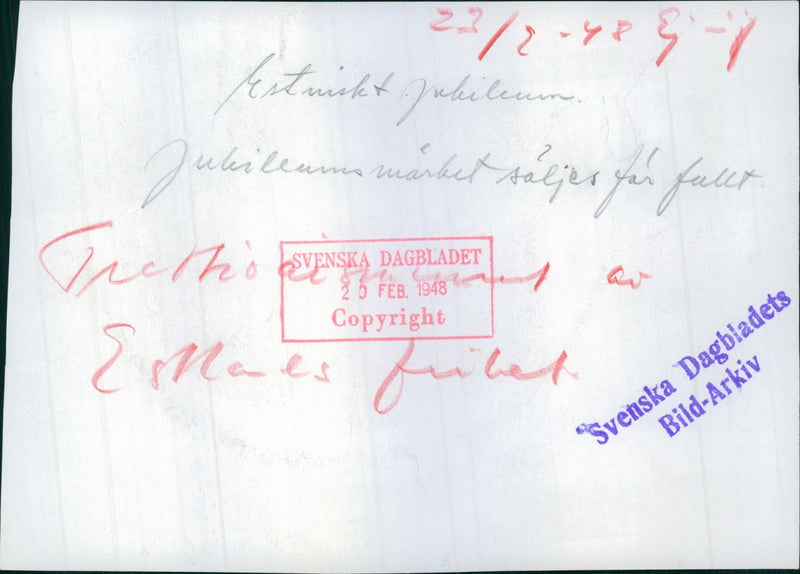 23/2 - 48 Ej
Estniskt jubileum.
Jubileumsmärket säljes för fullt.
Trettioårsminnet av
SVENSKA DAGBLADET
20 FEB. 1948
Copyright
Estlands frihet.
Svenska Dagbladets
Bild-Arkiv